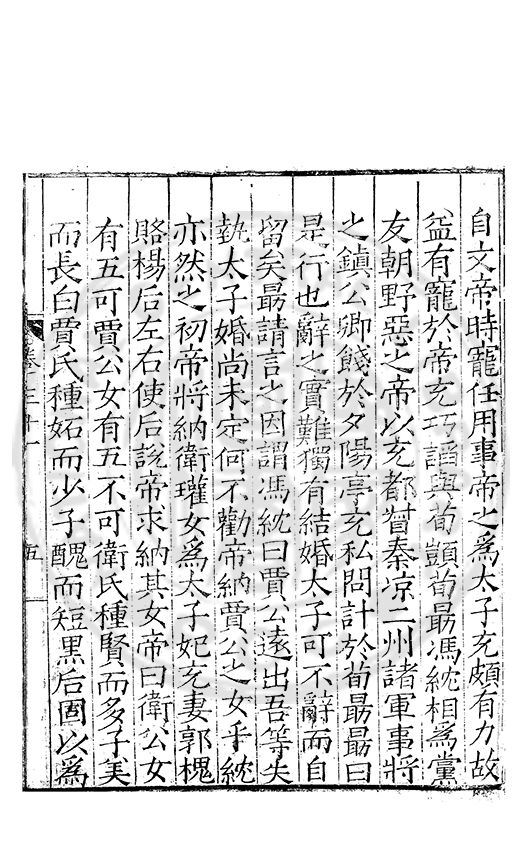 自文帝時寵任用事帝之爲太子充頗有力故
益有寵於帝充巧謟與荀顗荀朂馮紞相爲黨
友朝野惡之帝以充都督秦凉二州諸軍事將
之鎮公卿餞於夕陽亭充私問計於荀朂朂曰
是行也辭之實難獨有結婚太子可不辭而自
留矣朂請言之因謂馮紞曰賈公遠出吾等失
埶太子婚尚未定何不勸帝納賈公之女乎紞
亦然之初帝將納衛瓘女爲太子妃充妻郭槐
賂楊后左右使后說帝求納其女帝曰衛公女
有五可賈公女有五不可衛氏種賢而多子美
而長白賈氏種妬而少子醜而短黒后固以爲
卷二十一
五